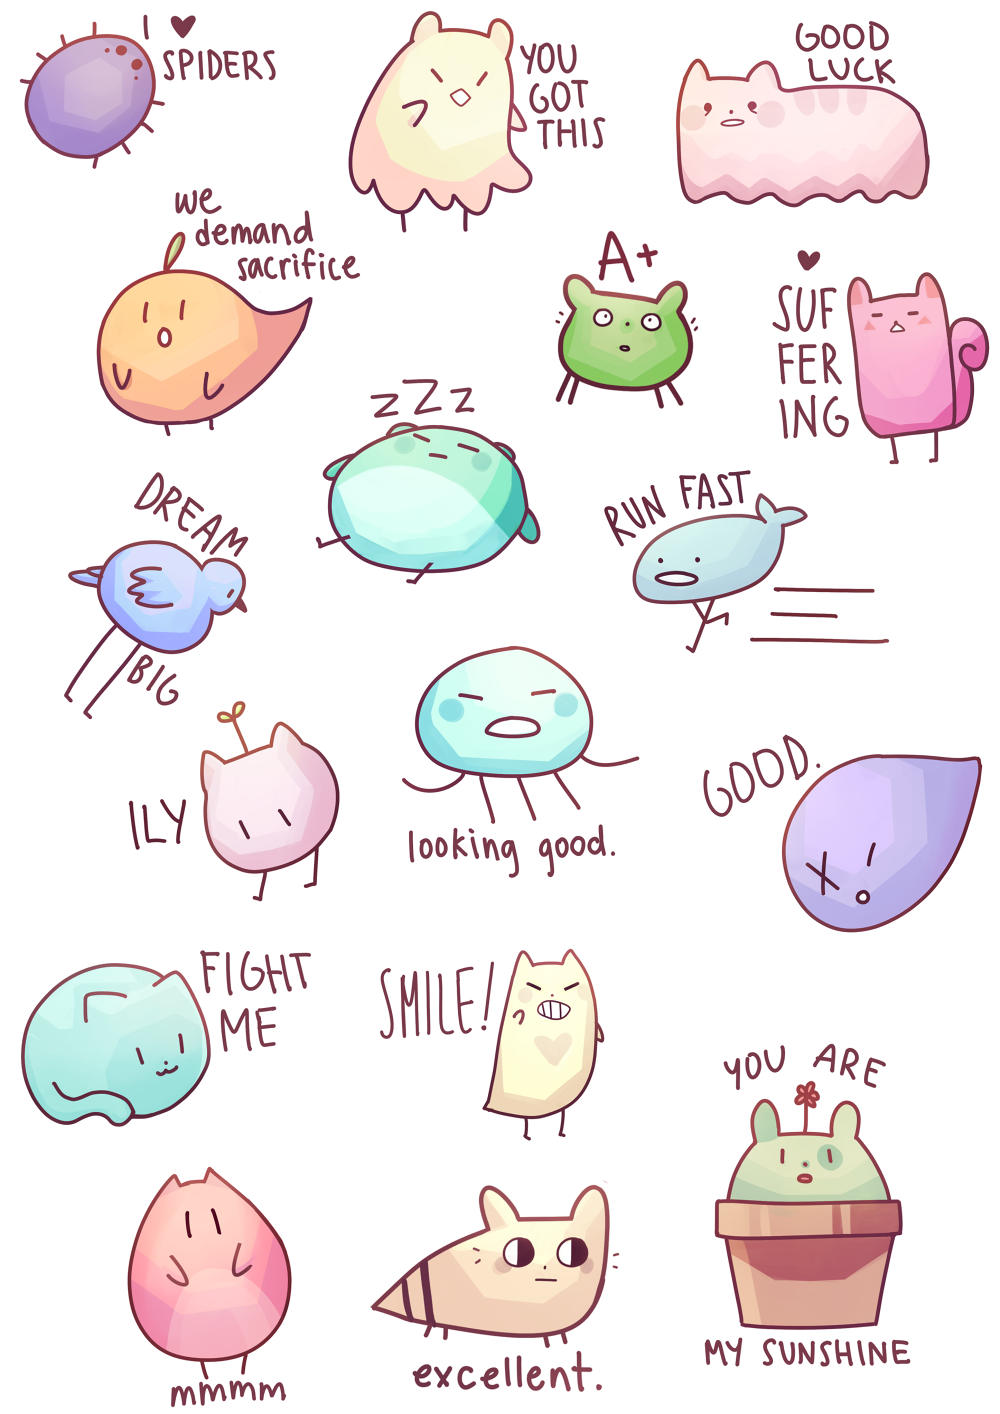 I ♥
SPIDERS
YOU
GOT
THIS
GOOD
LUCK
we
demand
sacrifice
A+
♥
SUF
FER
ING
zZz
DREAM
BIG
RUN FAST
ILY
looking good.
GOOD.
FIGHT
ME
SMILE!
YOU ARE
MY SUNSHINE
mmmm
excellent.